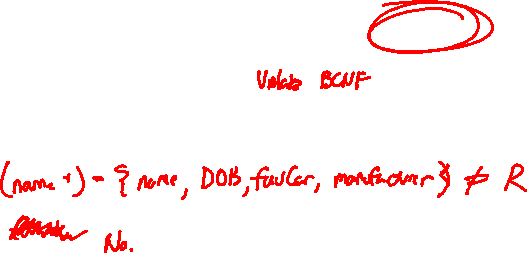 Violate BCNF
(name+) = { name, DOB, favCar, manufacturer } ≠ R
No.